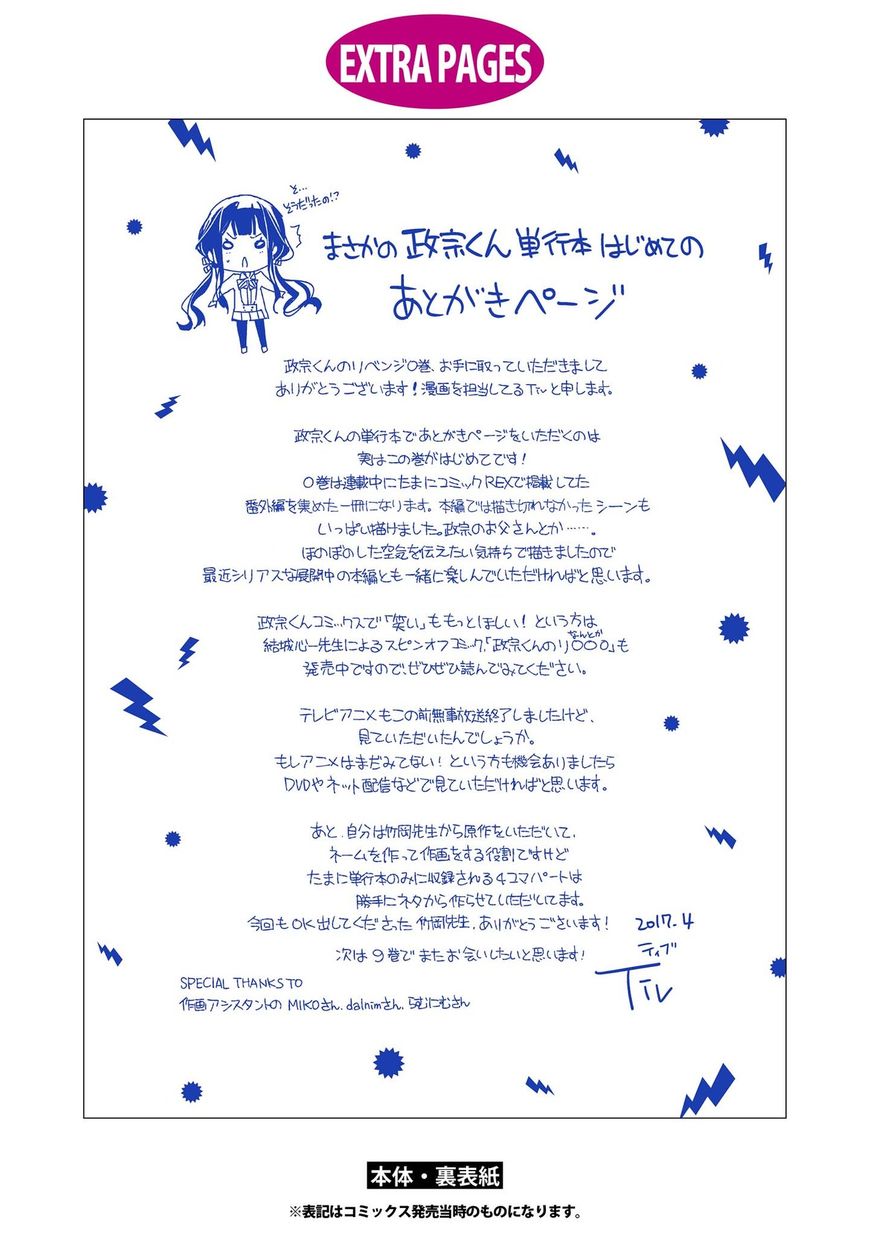 EXTRA PAGES
そ…
そうだったの!?
まさかの政宗くん単行本はじめての
あとがきページ
政宗くんのリベンジ0巻、お手に取っていただきまして
ありがとうございます!漫画を担当してるTivと申します。
政宗くんの単行本であとがきページをいただくのは
実はこの巻がはじめてです!
0巻は連載中にたまにコミックREXで掲載してた
番外編を集めた一冊になります。本編では描き切れなかったシーンも
いっぱい描けました。政宗のお父さんとか……。
ほのぼのした空気を伝えたい気持ちで描きましたので
最近シリアスな展開中の本編とも一緒に楽しんでいただければと思います。
政宗くんコミックスで「笑い」ももっとほしい!という方は
なんとか
結城心一先生によるスピンオフコミック、「政宗くんのリ○○○」も
発売中ですので、ぜひぜひ読んでみてください。
テレビアニメもこの前無事放送終了しましたけど、
見ていただいたんでしょうか。
もしアニメはまだみてない!という方も機会ありましたら
DVDやネット配信などで見ていただければと思います。
あと、自分は竹岡先生から原作をいただいて、
ネームを作って作画をする役割ですけど
たまに単行本のみに収録される4コマパートは
勝手にネタから作らせていただいてます。
今回もOK出してくださった竹岡先生、ありがとうございます!
次は9巻でまたお会いしたいと思います!
2017.4
ティブ
Tiv
SPECIAL THANKS TO
作画アシスタントの MIKOさん、dalnimさん、らむにむさん
本体・裏表紙
※表記はコミックス発売当時のものになります。